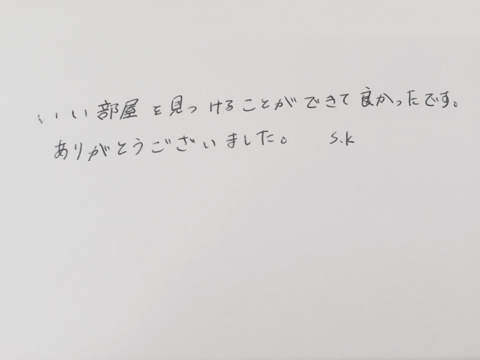 いい部屋を見つけることができて良かったです。
ありがとうございました。 S.K